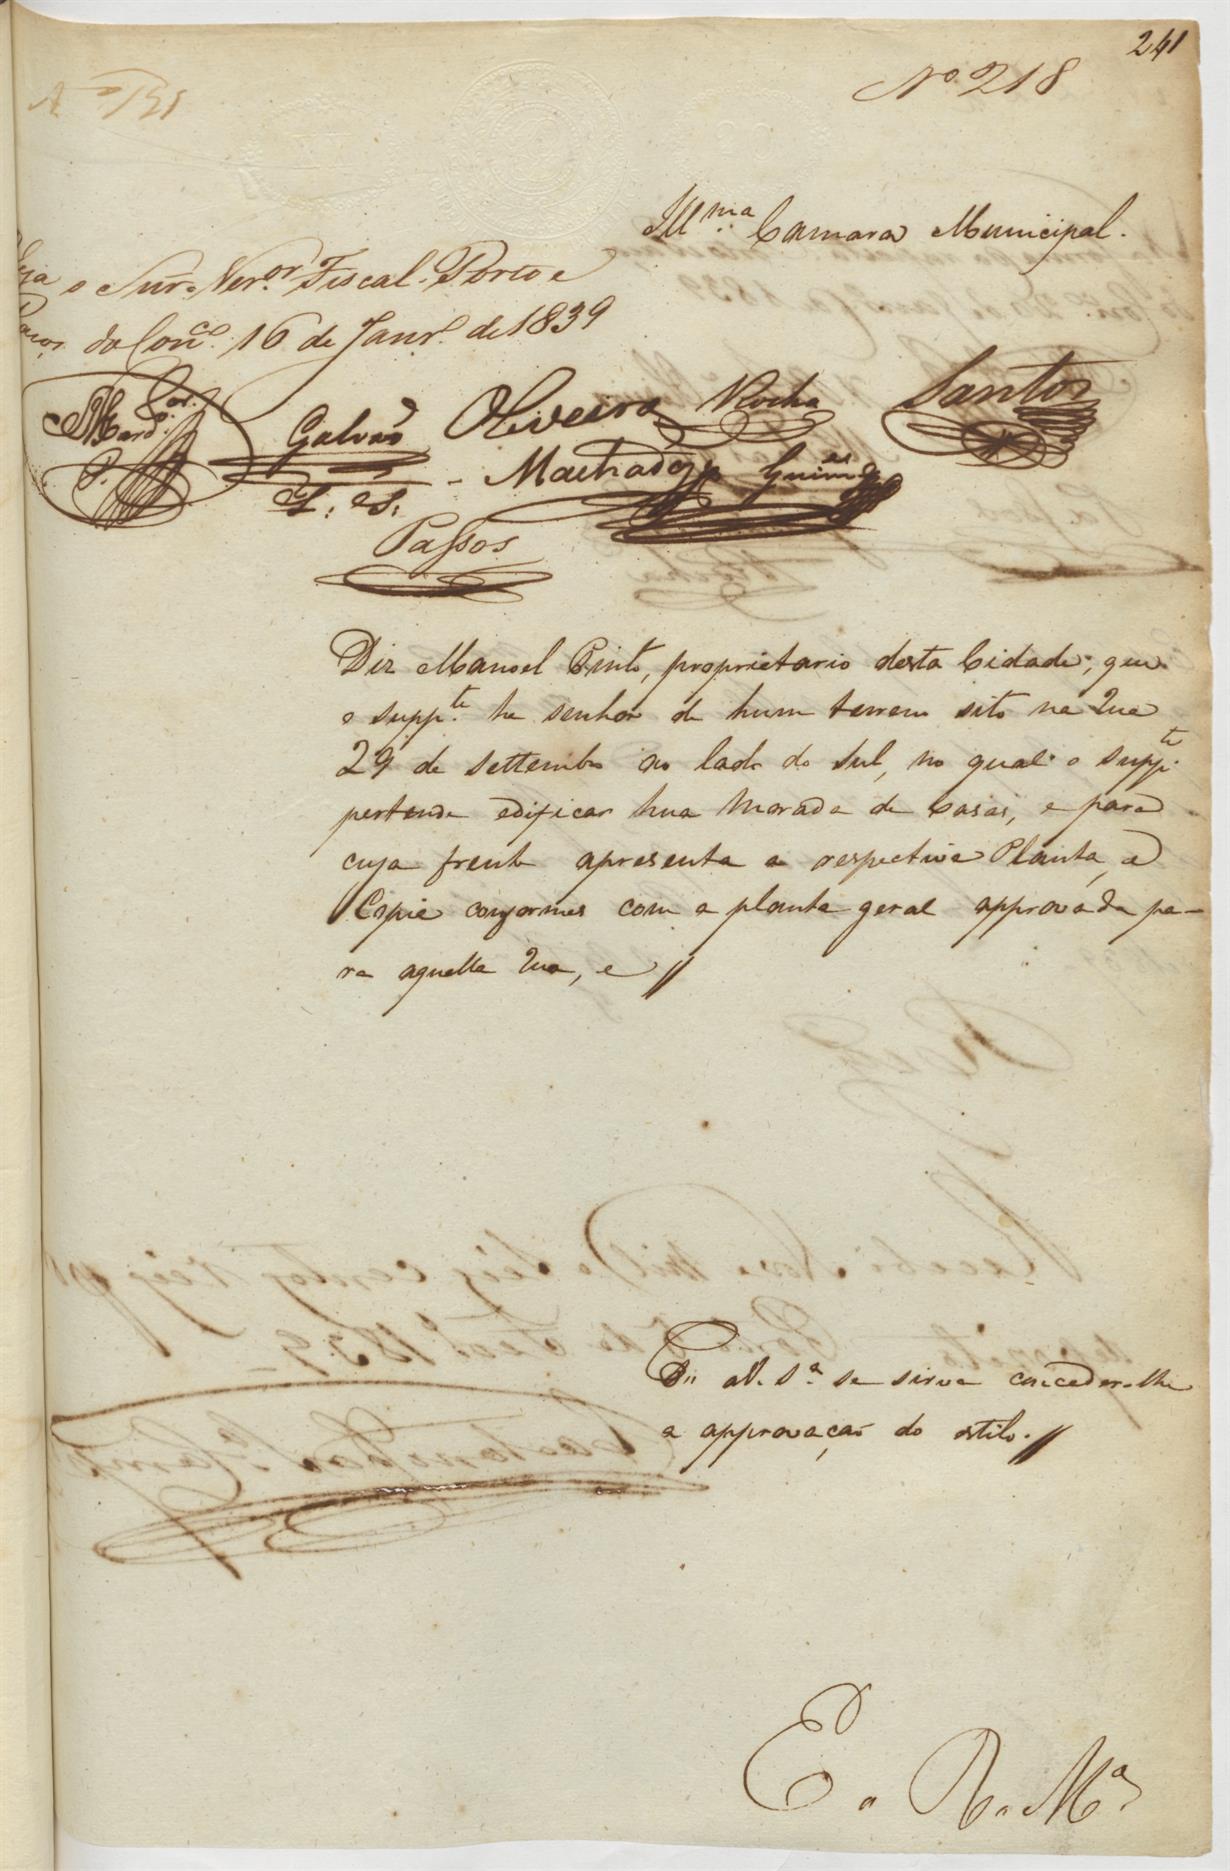 241
Nº 218
Nº 151
Illma. Camara Municipal.
Veja o Snr. Veror. Fiscal. Porto e
Paços do Conco. 16 de Janro. de 1839
Galvão Oliveira Rocha Santos
P. Machado Guimes
Passos
Diz Manoel Pinto, proprietario desta Cidade; que
o suppte. he senhor de hum terreno sito na Rua
29 de settembro no lado do sul, no qual o suppte.
pertende edificar hua morada de casas, e para
cuja frente apresenta a respectiva Planta, e
Copia conformes com a planta geral approvada pa-
ra aquella Rua, e //
P. a V. Sa. se sirva conceder-lhe
a approvação do estilo. //
E. R. Mª